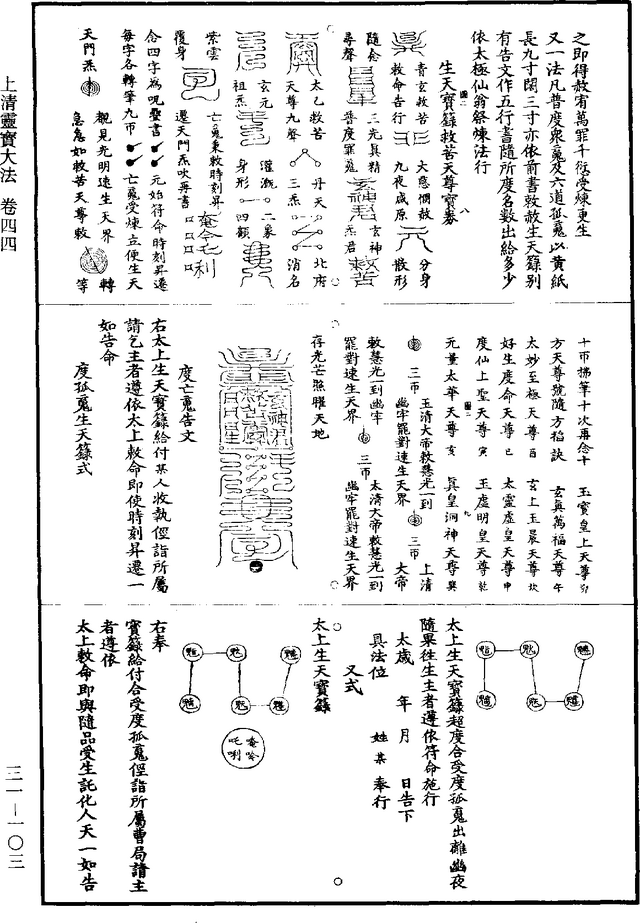 上清靈寶大法 卷四四
三一—一〇三
之即得赦宥萬罪千愆受煉更生
又一法凡普度衆䰟及六道孤䰟以黄紙
長九寸闊三寸亦依前書敕赦生天籙别
有告文作五行書隨所度名數出給多少
依太極仙翁祭煉法行
生天寳籙救苦天尊寳券
青玄救苦 大慈憫赦 分身
敕命告行 九夜咸原 散形
隨念 三光真精 玄神
尋聲 普度罪䰟 炁君
太乙救苦 丹天 北府
天尊九聲 三炁 消名
玄元 灌漑 二景
祖炁 身形 四顧
紫雲 亡䰟秉敕時刻昇
覆身 遷天門炁吹再書
念四字爲呪疊書 元始符命時刻昇遷
每字各轉筆九帀 亡䰟受煉立便生天
天門炁 覩見光明速生天界 轉
急急如救苦天尊敕 等
十帀拂筆十次再念十 玉寳皇上天尊卯
方天尊號隨方掐訣 玄真萬福天尊午
太妙至極天尊酉 玄上玉晨天尊坎
好生度命天尊巳 太靈虚皇天尊申
度仙上聖天尊寅 玉虚明皇天尊乾
元量太華天尊亥 真皇洞神天尊巽
三帀 玉清大帝敕慧光一到 三帀 上清
幽牢罷對速生天界 大帝
敕慧光一到幽牢 三帀 太清大帝敕慧光一到
罷對速生天界 幽牢罷對速生天界
存光芒照耀天地
度亡䰟告文
右太上生天寳籙給付某人收執徑詣所屬
請乞主者遵依太上敕命即使時刻昇遷一
如告命
度孤䰟生天籙式
太上生天寳籙超度合受度孤䰟出離幽夜
隨果徃生主者遵依符命施行
太歲 年 月 日告下
具法位 姓 某 奉行
又式
太上生天寳籙
右奉
寳籙給付合受度孤䰟徑詣所屬曹局請主
者遵依
太上敕命即與隨品受生託化人天一如告